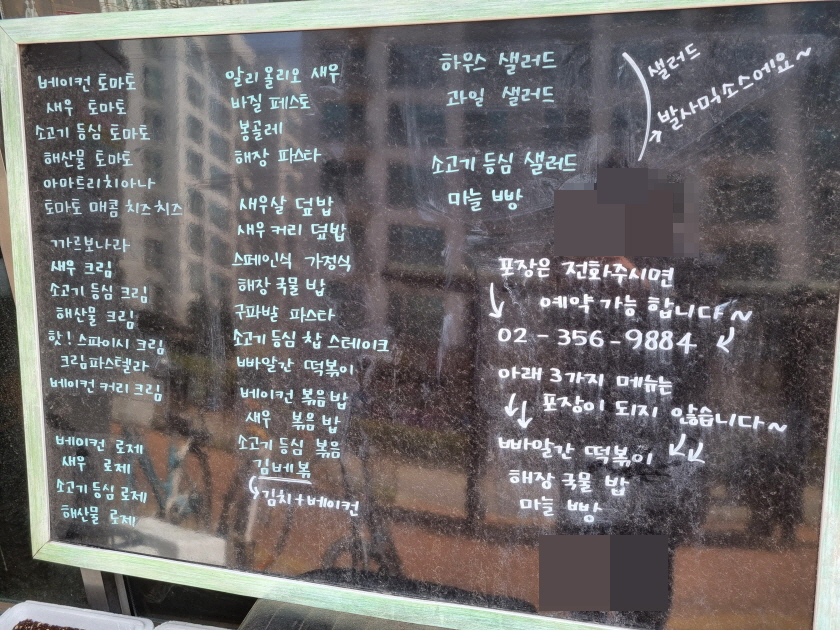 베이컨 토마토
새우 토마토
소고기 등심 토마토
해산물 토마토
아마트리치아나
토마토 매콤 치즈치즈
까르보나라
새우 크림
소고기 등심 크림
해산물 크림
핫! 스파이시 크림
크림파스텔라
베이컨 커리 크림
베이컨 로제
새우 로제
소고기 등심 로제
해산물 로제
알리올리오 새우
바질 페스토
봉골레
해장 파스타
새우살 덮밥
새우커리 덮밥
스페인식 가정식
해장 국물 밥
구파발 파스타
소고기 등심 찹 스테이크
빠알간 떡볶이
베이컨 볶음밥
새우 볶음밥
소고기 등심 볶음
김베볶
김치+베이컨
하우스 샐러드
과일 샐러드
소고기 등심 샐러드
마늘 빵
샐러드
발사믹소스에요~
포장은 전화주시면
예약 가능 합니다~
02-356-9884
아래 3가지 메뉴는
포장이 되지 않습니다~
빠알간 떡볶이
해장 국물 밥
마늘 빵